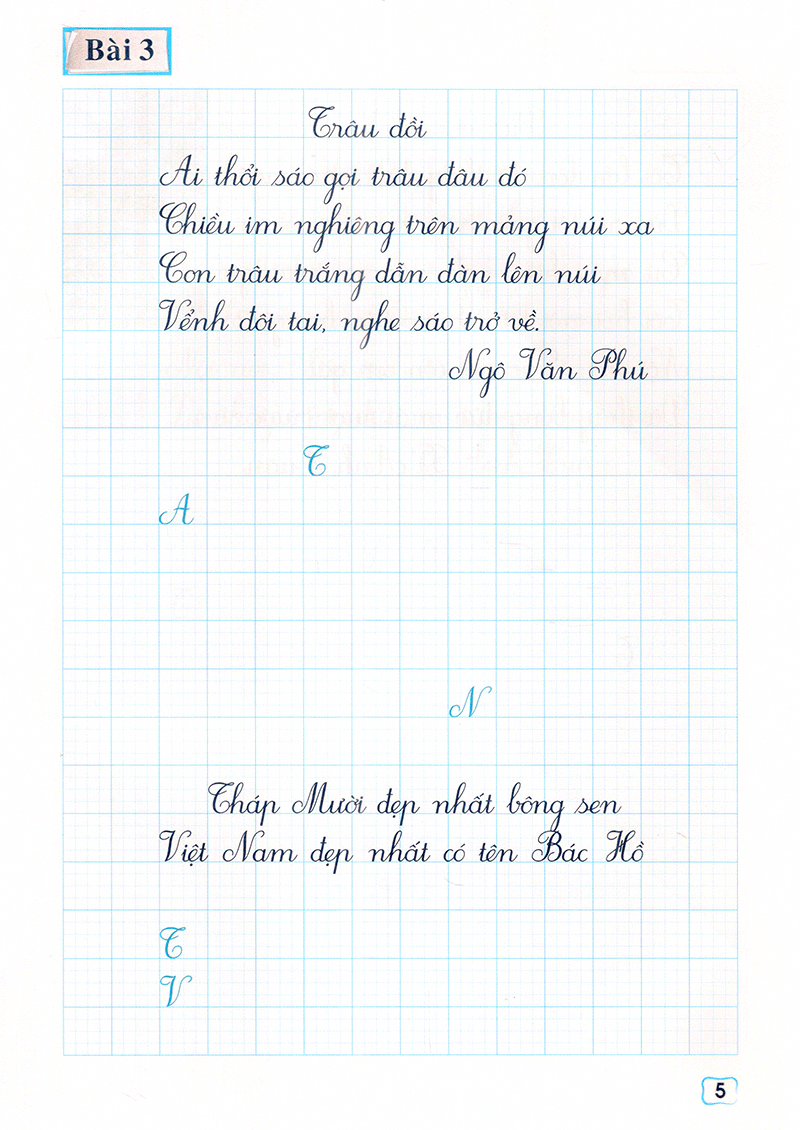 Bài 3
Trâu đồi
Ai thổi sáo gọi trâu đâu đó
Chiều im nghiêng trên mảng núi xa
Con trâu trắng dẫn đàn lên núi
Vểnh đôi tai, nghe sáo trở về.
Ngô Văn Phú
T
A
N
Tháp Mười đẹp nhất bông sen
Việt Nam đẹp nhất có tên Bác Hồ
T
V
5